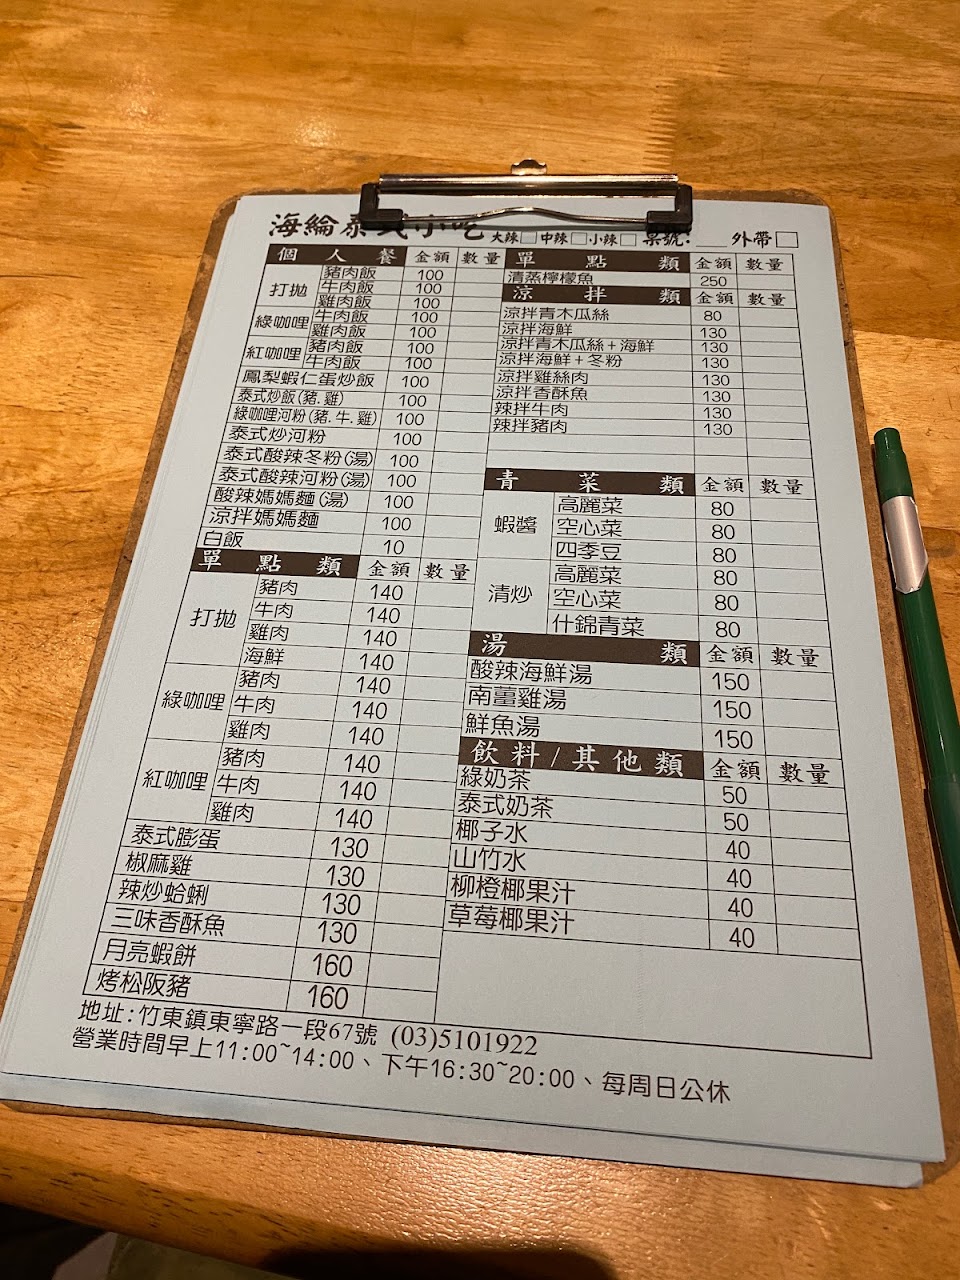 海綸泰式小吃 大辣□ 中辣□ 小辣□ 桌號：___ 外帶□
個人餐 金額 數量
打拋 豬肉飯 100
牛肉飯 100
雞肉飯 100
綠咖哩 牛肉飯 100
雞肉飯 100
紅咖哩 豬肉飯 100
牛肉飯 100
鳳梨蝦仁蛋炒飯 100
泰式炒飯(豬.雞) 100
綠咖哩河粉(豬.牛.雞) 100
泰式炒河粉 100
泰式酸辣冬粉(湯) 100
泰式酸辣河粉(湯) 100
酸辣媽媽麵(湯) 100
涼拌媽媽麵 100
白飯 10
單點類 金額 數量
打拋 豬肉 140
牛肉 140
雞肉 140
海鮮 140
綠咖哩 豬肉 140
牛肉 140
雞肉 140
紅咖哩 豬肉 140
牛肉 140
雞肉 140
泰式膨蛋 130
椒麻雞 130
辣炒蛤蜊 130
三味香酥魚 130
月亮蝦餅 160
烤松阪豬 160
單點類 金額 數量
清蒸檸檬魚 250
涼拌類 金額 數量
涼拌青木瓜絲 80
涼拌海鮮 130
涼拌青木瓜絲+海鮮 130
涼拌海鮮+冬粉 130
涼拌雞絲肉 130
涼拌香酥魚 130
辣拌牛肉 130
辣拌豬肉 130
青菜類 金額 數量
蝦醬 高麗菜 80
空心菜 80
四季豆 80
清炒 高麗菜 80
空心菜 80
什錦青菜 80
湯類 金額 數量
酸辣海鮮湯 150
南薑雞湯 150
鮮魚湯 150
飲料/其他類 金額 數量
綠奶茶 50
泰式奶茶 50
椰子水 40
山竹水 40
柳橙椰果汁 40
草莓椰果汁 40
地址:竹東鎮東寧路一段67號 (03)5101922
營業時間早上11:00~14:00、下午16:30~20:00、每周日公休